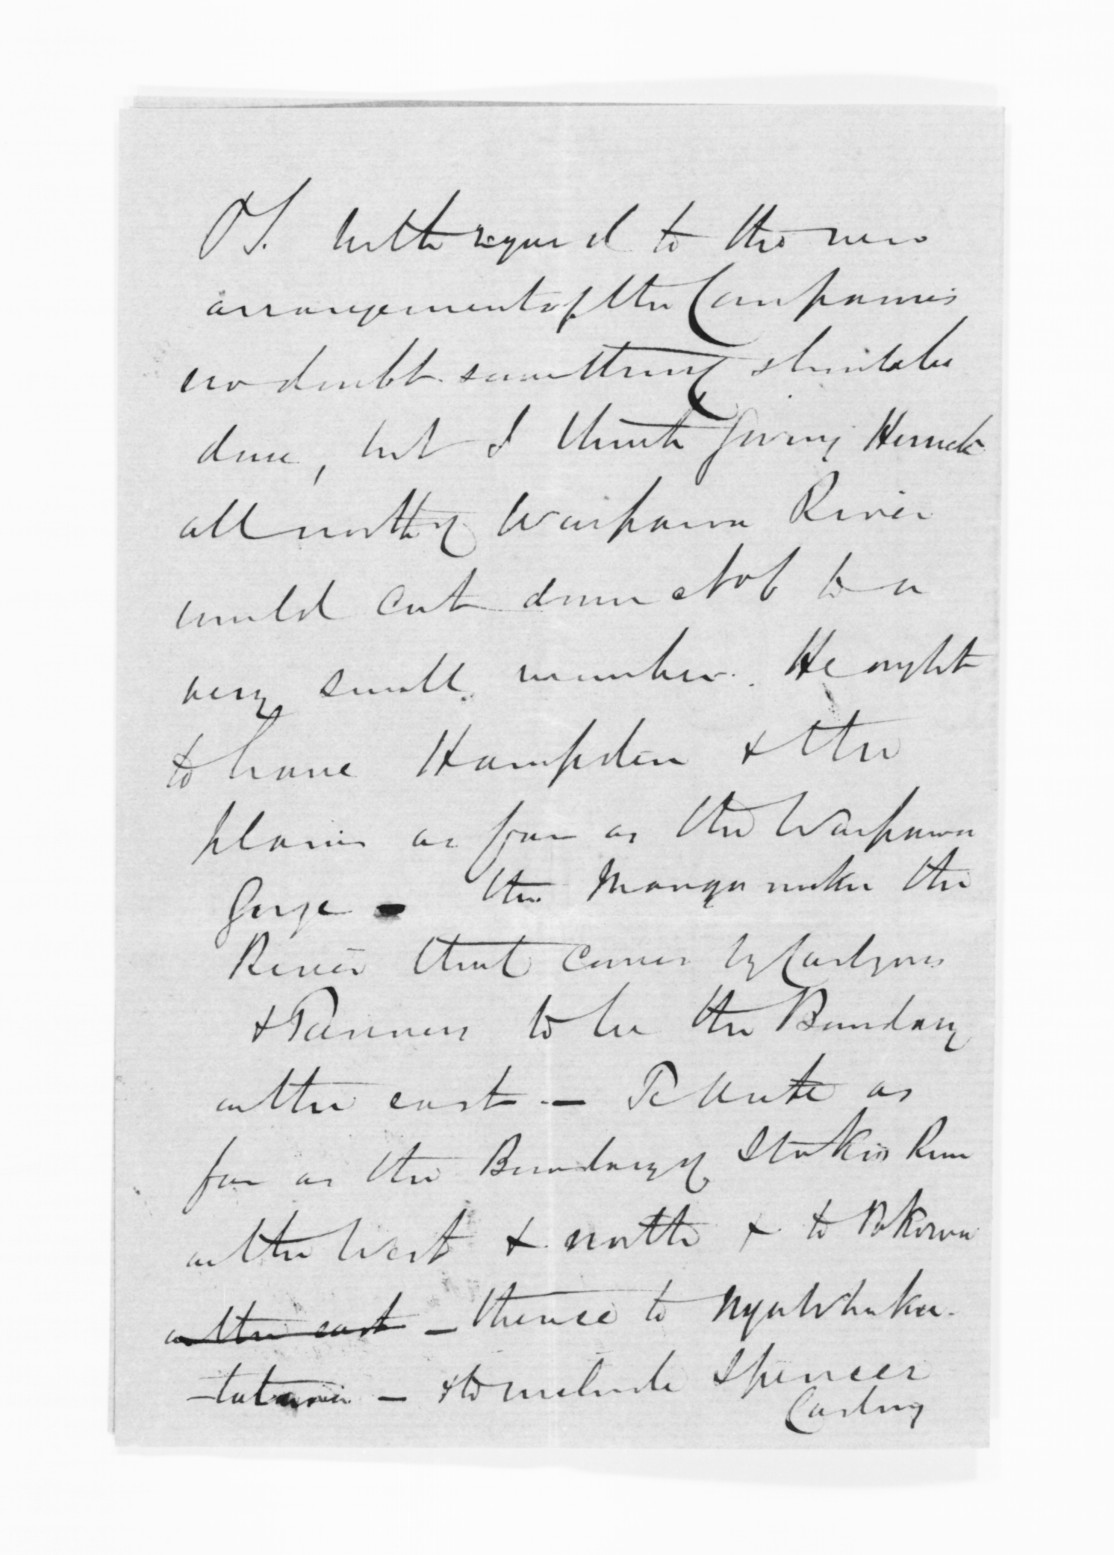 PS. With regard to the new
arrangement of the Companies
no doubt something should be
done, but I think giving Herrick
all north of Waipawa River
would cut down to a
very small number. He ought
to have Hampden & the
plains as far as the Waipawa
Gorge - the Manganuku the
River that comes by Carlyons
& Tanners to be the Boundary
on the east - Te Aute as
far as the Boundary of Stokes Run
on the West & north & to Pokawa
on the east - thence to Ngawhaka-
-tatara - & to include Spencer
Carlyon